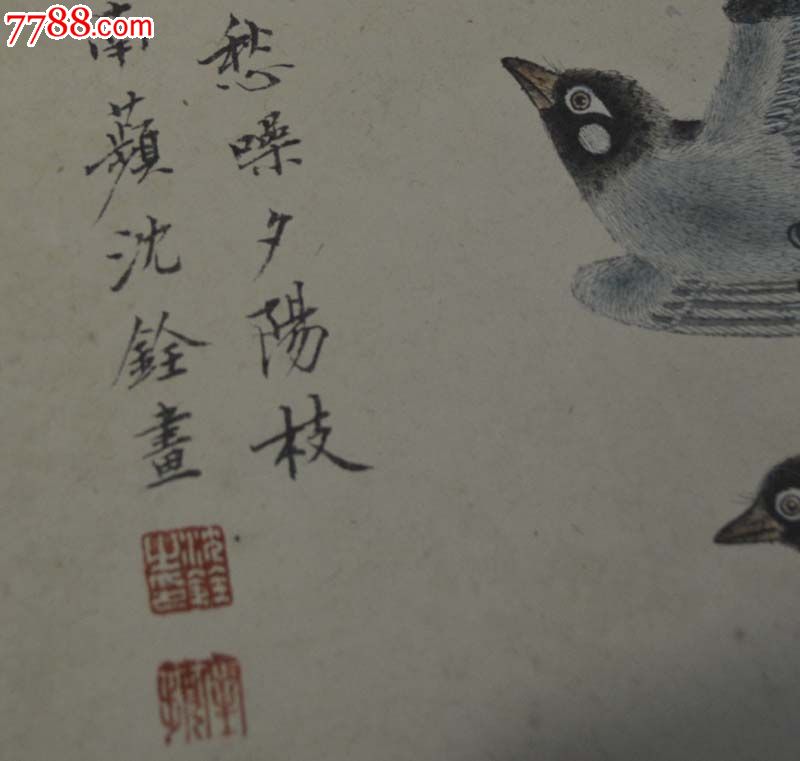 7788.com
愁噪夕陽枝
南蘋沈銓畫
沈銓之印